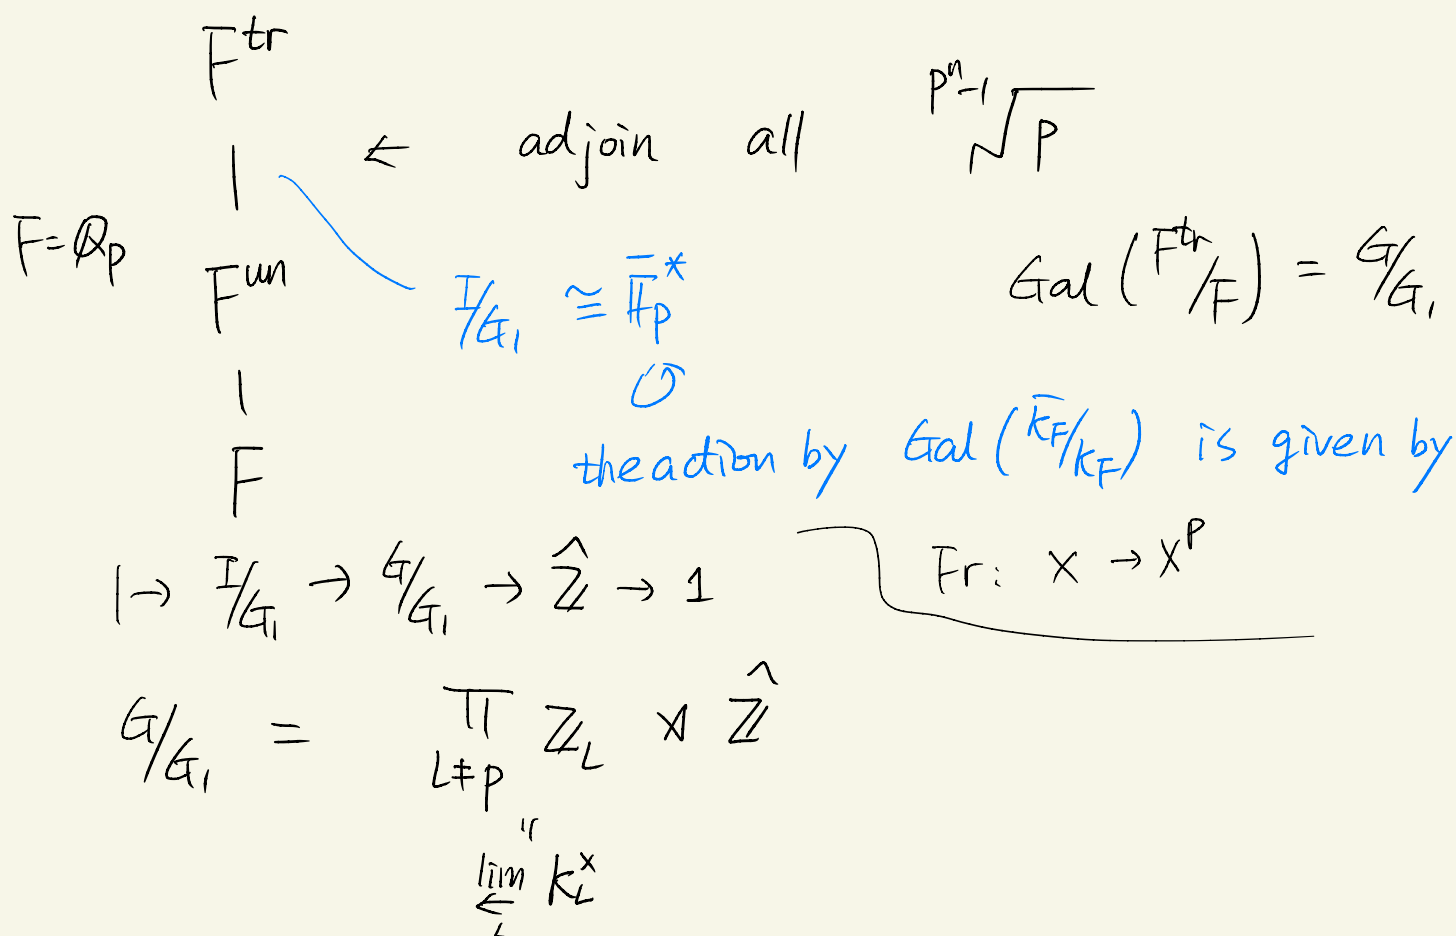 F^{tr}
| ← adjoin all \sqrt[p^n-1]{p}
F = ℚ_p
F^{un}
I/G_1 ≅ \bar{𝔽}_p^*
Gal(F^{tr}/F) = G/G_1
|
↺
F
the action by Gal(\bar{k_F}/k_F) is given by
Fr: x → x^p
1 → I/G_1 → G/G_1 → \hat{ℤ} → 1
G/G_1 = ∏_{L≠p} ℤ_L ⋊ \hat{ℤ}
"
\lim_{←} k_L^×